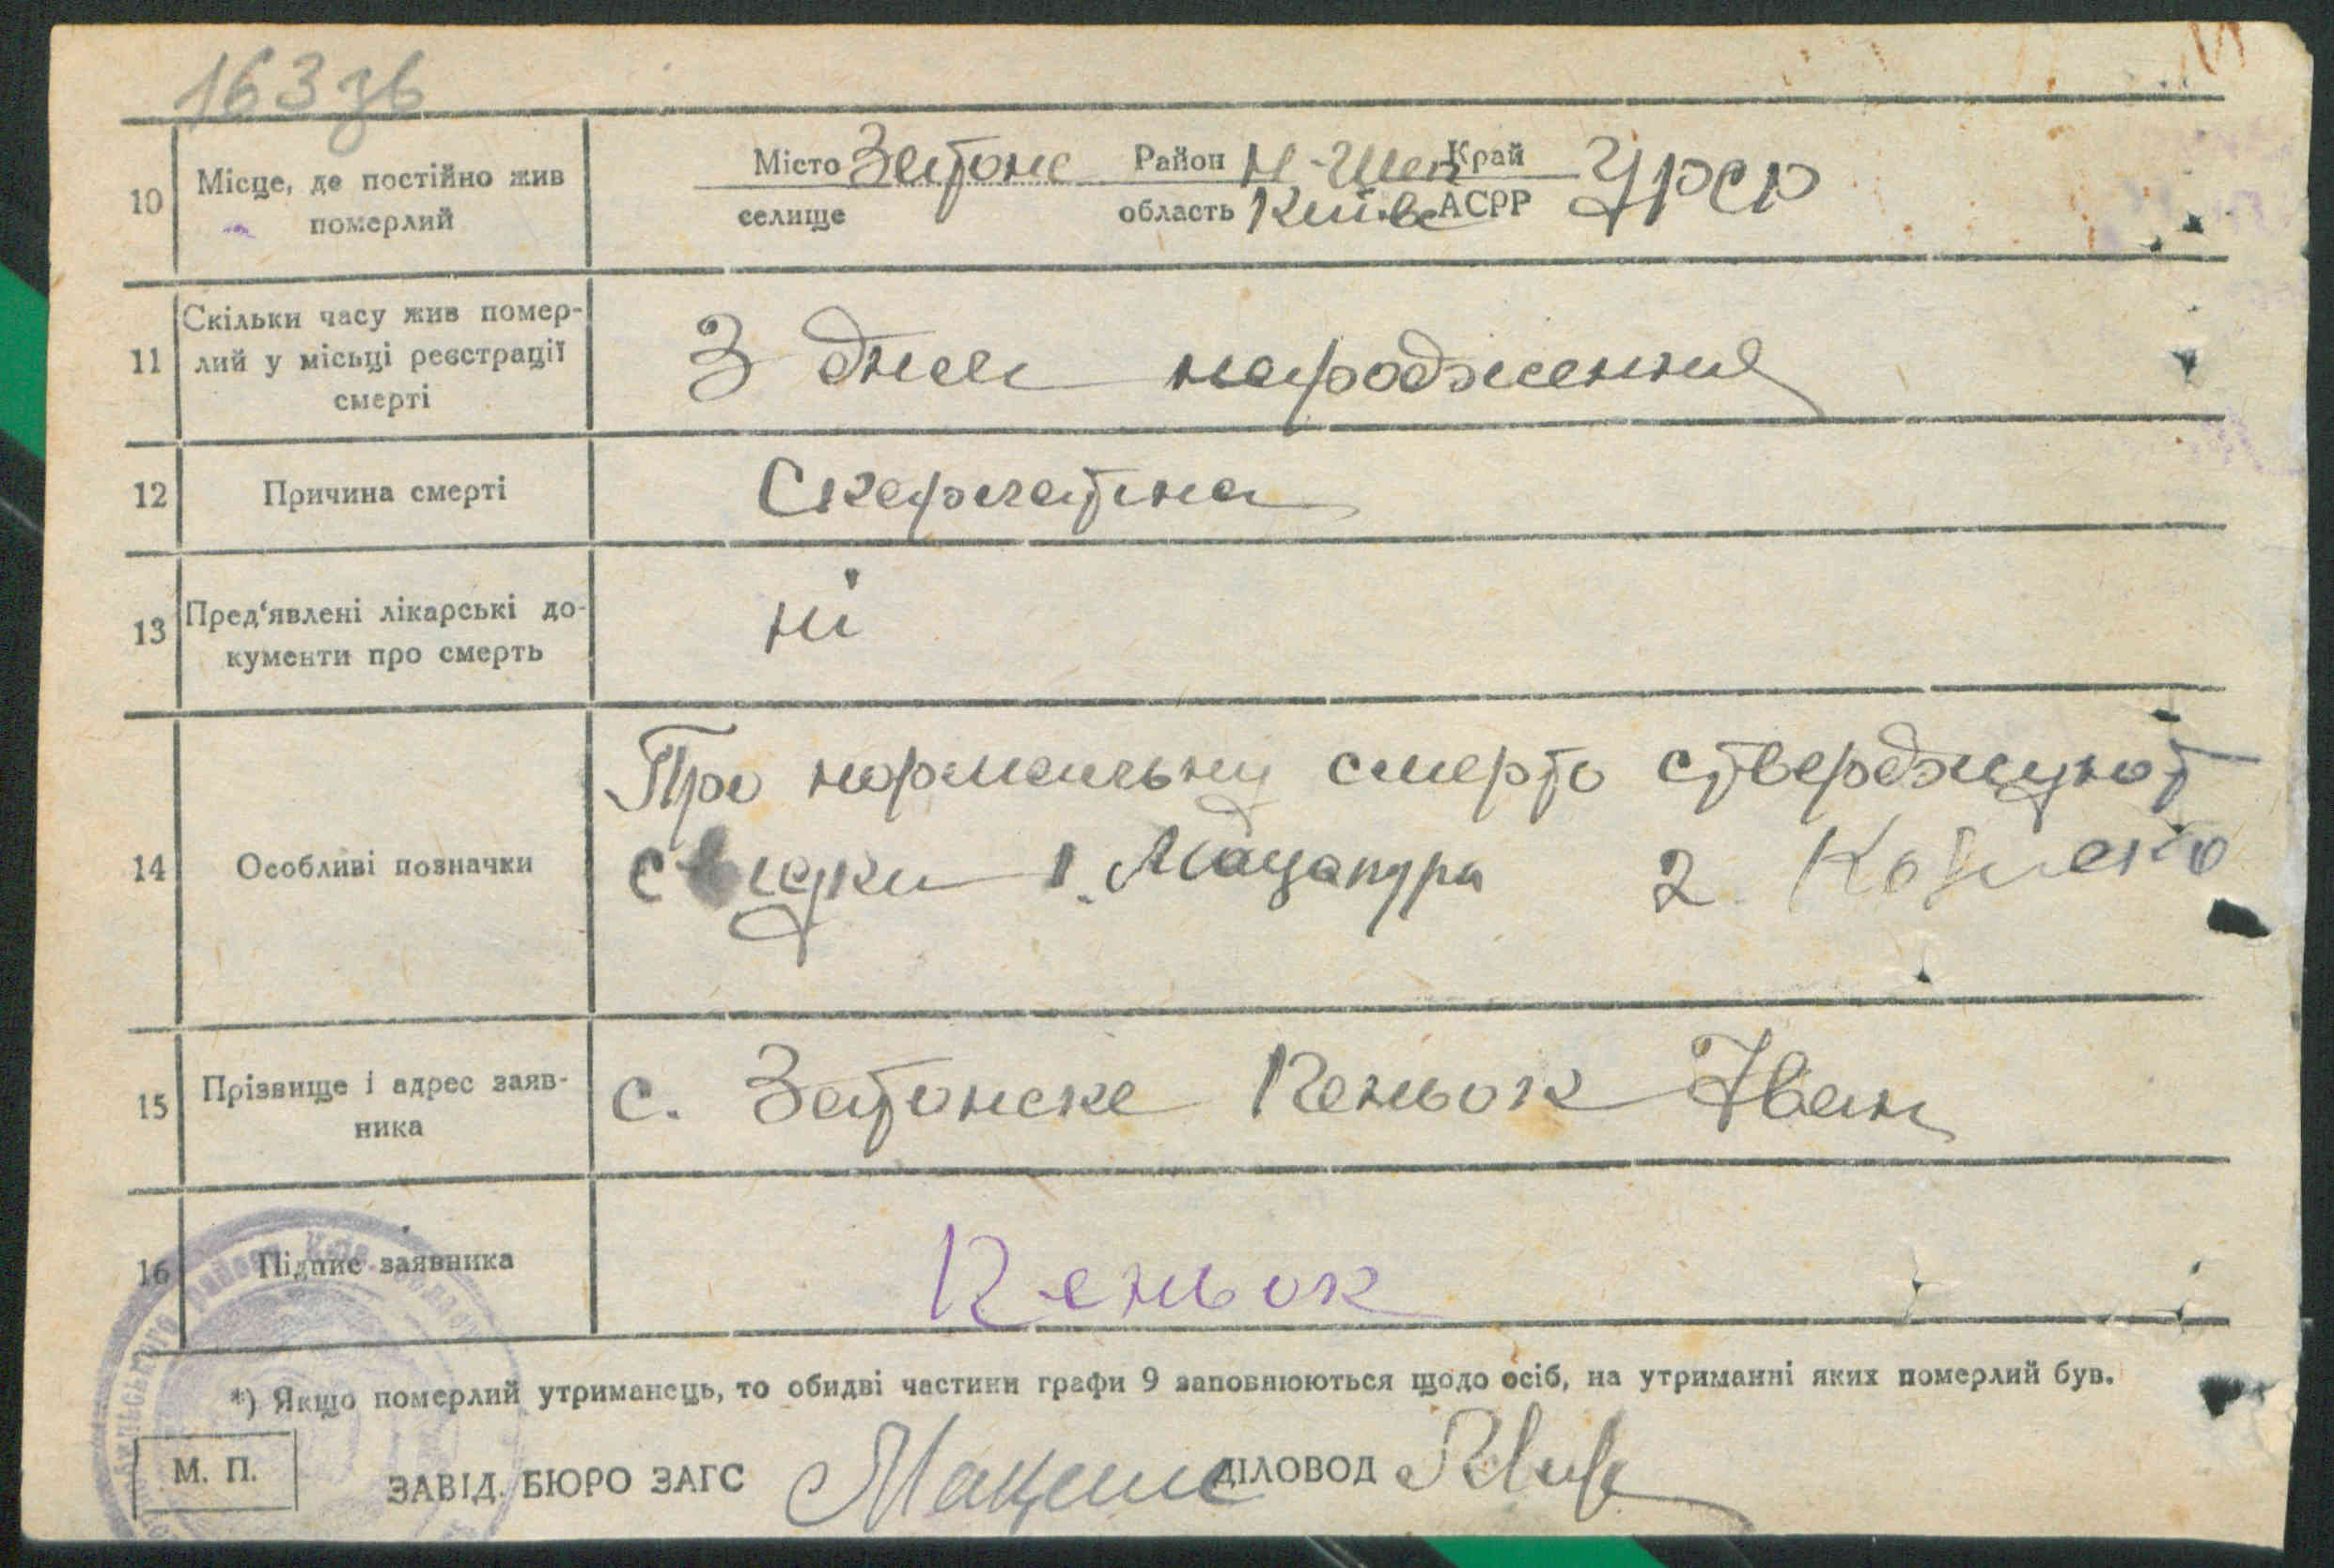 163 зв
10 Місце, де постійно жив померлий
Місто Затонс Район Н-Шеп Край УРСР
селище область Київс АСРР
11 Скільки часу жив помер-
лий у місьці реєстрації
смерті
З дня народження
12 Причина смерті Скарлатина
13 Пред‘явлені лікарські до-
кументи про смерть
ні
14 Особливі позначки
Про нормальну смерть стверджують
свідки 1. Мацапура 2.
15 Прізвище і адрес заяв-
ника
с. Затонске Кеньок Іван
16 Підпис заявника Кеньок
*) Якщо померлий утриманець, то обидві частини графи 9 заповнюються щодо осіб, на утриманні яких померлий був.
М. П. ЗАВІД. БЮРО ЗАГС ДІЛОВОД